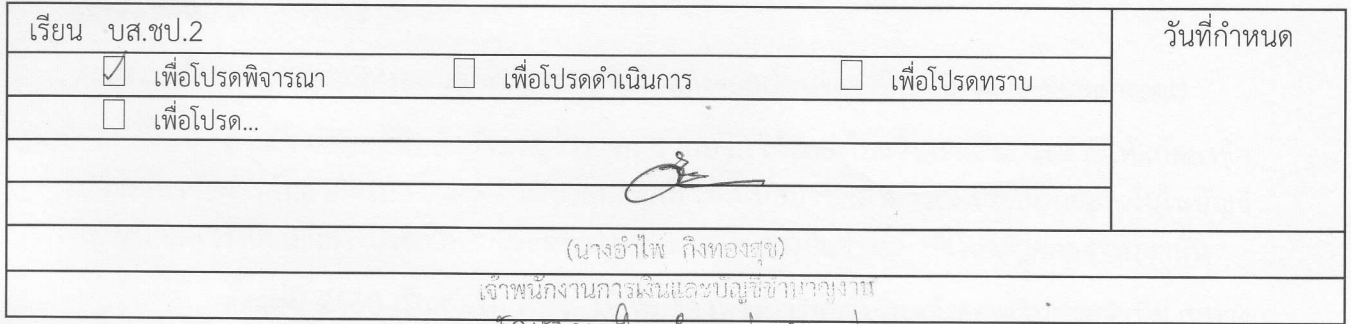 เรียน บส.ชป.2
วันที่กำหนด
เพื่อโปรดพิจารณา เพื่อโปรดดำเนินการ เพื่อโปรดทราบ
เพื่อโปรด...
(นางอำไพ กิ่งทองสุข)
เจ้าพนักงานการเงินและบัญชีชำนาญงาน